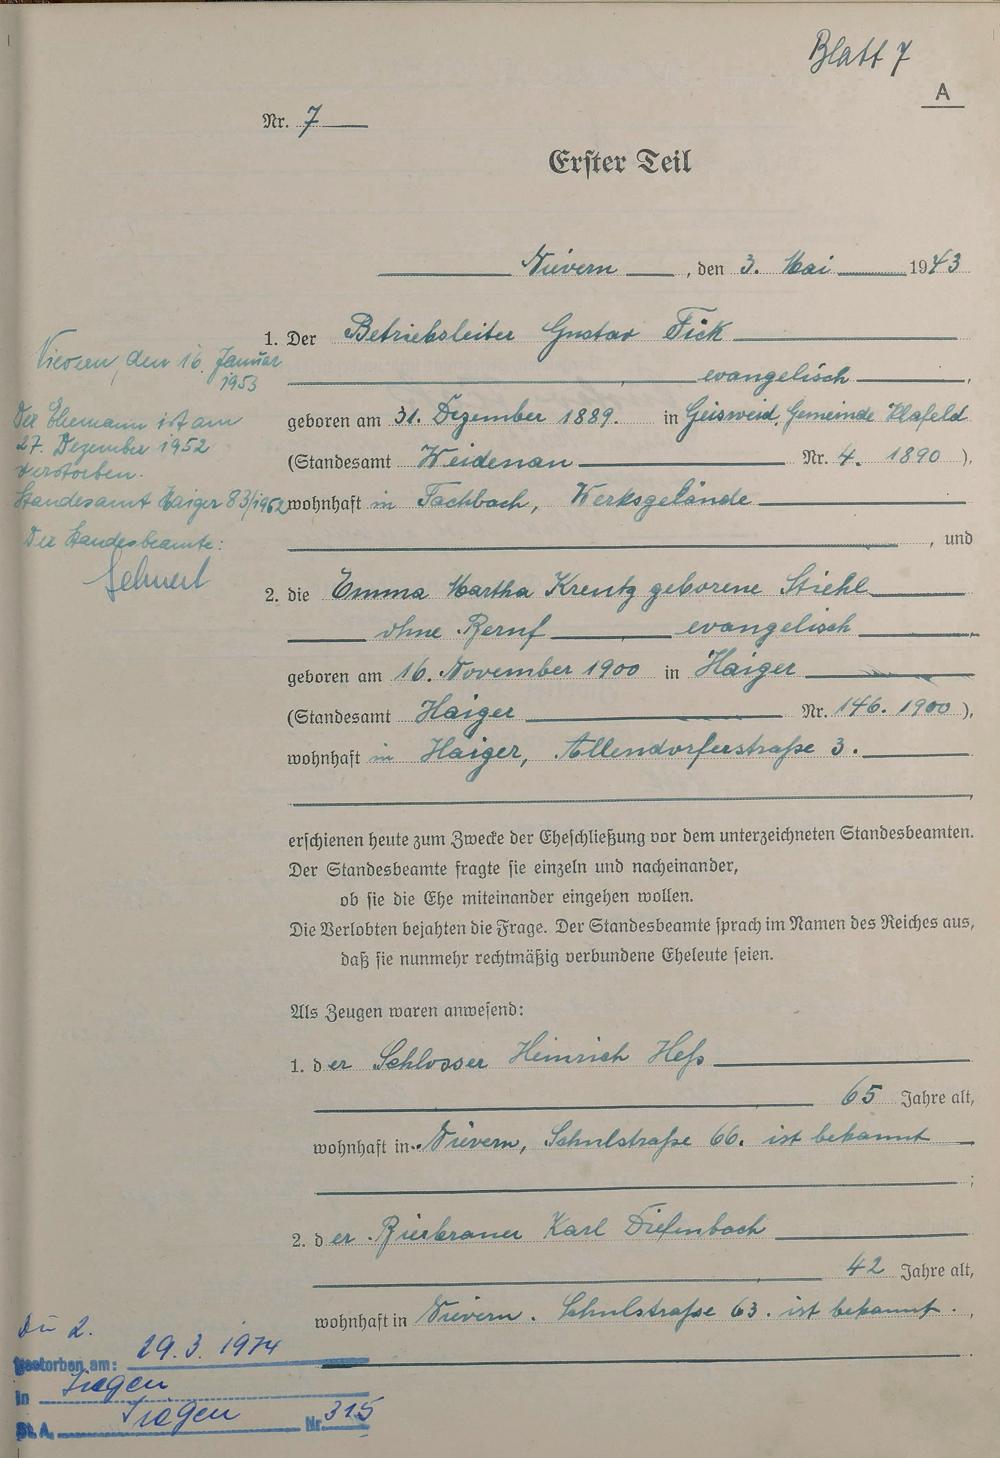 Blatt 7
A
Nr. 7
Erster Teil
Nievern, den 3. Mai 1943
1. Der Betriebsleiter Gustav Fick
evangelisch,
geboren am 31. Dezember 1889. in Geisweid, Gemeinde Klafeld
(Standesamt Weidenau Nr. 4. 1890),
wohnhaft in Fachbach, Werksgelände
, und
2. die Emma Martha Kreutz geborene Stiehl
ohne Beruf evangelisch
geboren am 16. November 1900 in Haiger
(Standesamt Haiger Nr. 146. 1900),
wohnhaft in Haiger, Allendorferstraße 3.
erschienen heute zum Zwecke der Eheschließung vor dem unterzeichneten Standesbeamten.
Der Standesbeamte fragte sie einzeln und nacheinander,
ob sie die Ehe miteinander eingehen wollen.
Die Verlobten bejahten die Frage. Der Standesbeamte sprach im Namen des Reiches aus,
daß sie nunmehr rechtmäßig verbundene Eheleute seien.
Als Zeugen waren anwesend:
1. der Schlosser Heinrich Heß
65 Jahre alt,
wohnhaft in Nievern, Schulstraße 66. ist bekannt
;
2. der Bierbrauer Karl Diefenbach
42 Jahre alt,
wohnhaft in Nievern. Schulstraße 63. ist bekannt.,
Nievern, den 16. Januar
1953
Der Ehemann ist am
27. Dezember 1952
verstorben.
Standesamt Haiger 83/1952
Der Standesbeamte:
Zu 2.
gestorben am: 29.3.1974
in Siegen
St. A. Siegen Nr. 315